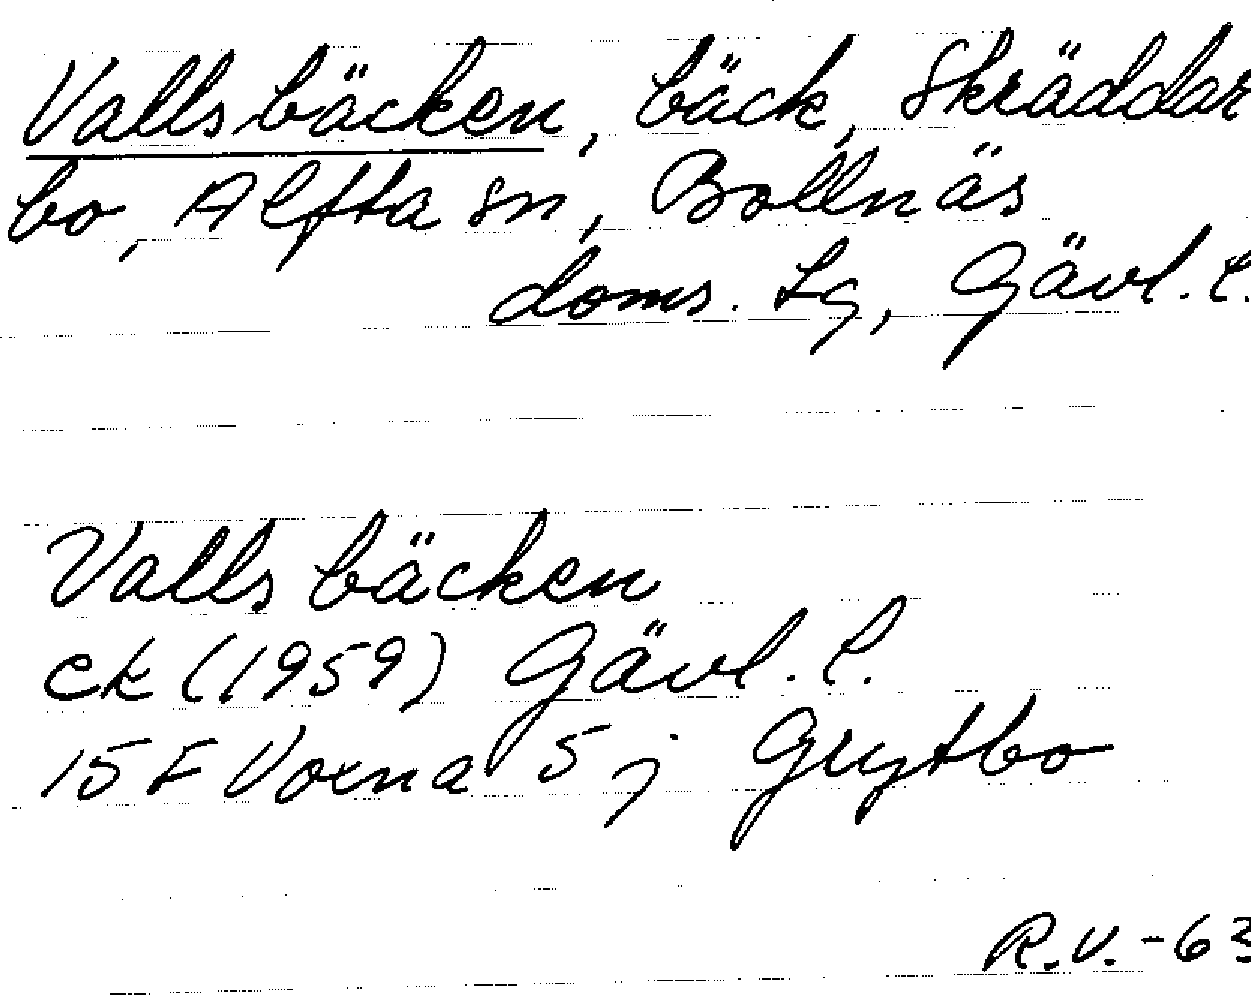 Vallsbäcken, bäck, Skräddar
bo, Alfta sn, Bollnäs
doms. Lg, Gävl. l.
Vallsbäcken
ek (1959) Gävl. l.
15 F Voxna 5 j Grytbo
R.V. -63